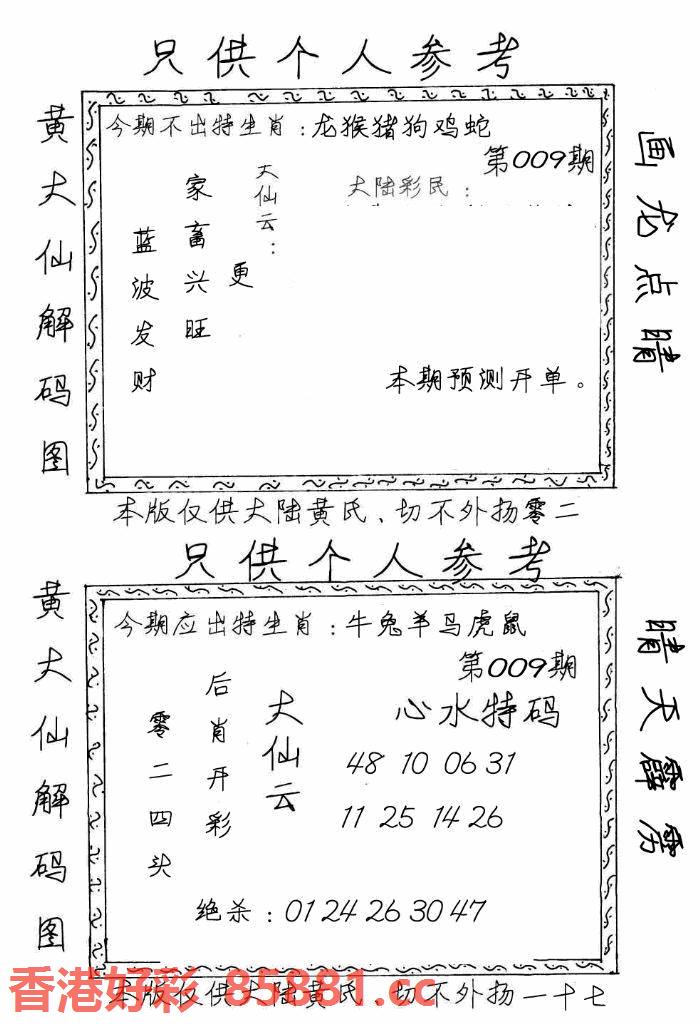 只供个人参考
黄大仙解码图
今期不出特生肖：龙猴猪狗鸡蛇
第009期
大陆彩民：
大仙云：
更
家畜兴旺
蓝波发财
本期预测开单。
画龙点晴
本版仅供大陆黄氏、切不外扬零二
只供个人参考
黄大仙解码图
今期应出特生肖：牛兔羊马虎鼠
第009期
大仙云
后肖开彩
零二四头
心水特码
48 10 06 31
11 25 14 26
绝杀：01 24 26 30 47
晴天霹雳
香港好彩 85881.cc
本版仅供大陆黄氏、切不外扬一十七